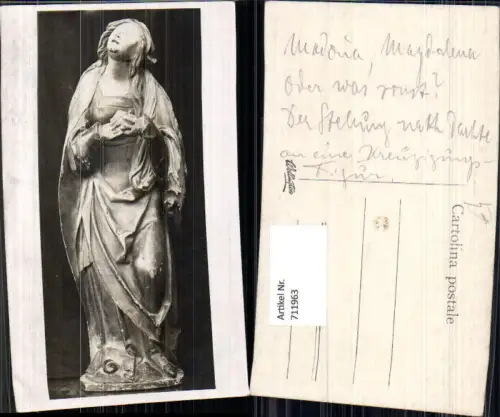 Madonna, Magdalena
oder was sonst?
Der Stellung nach dachte
an eine Kreuzigungs-
Figur.
Artikel Nr.
711963
Cartolina postale